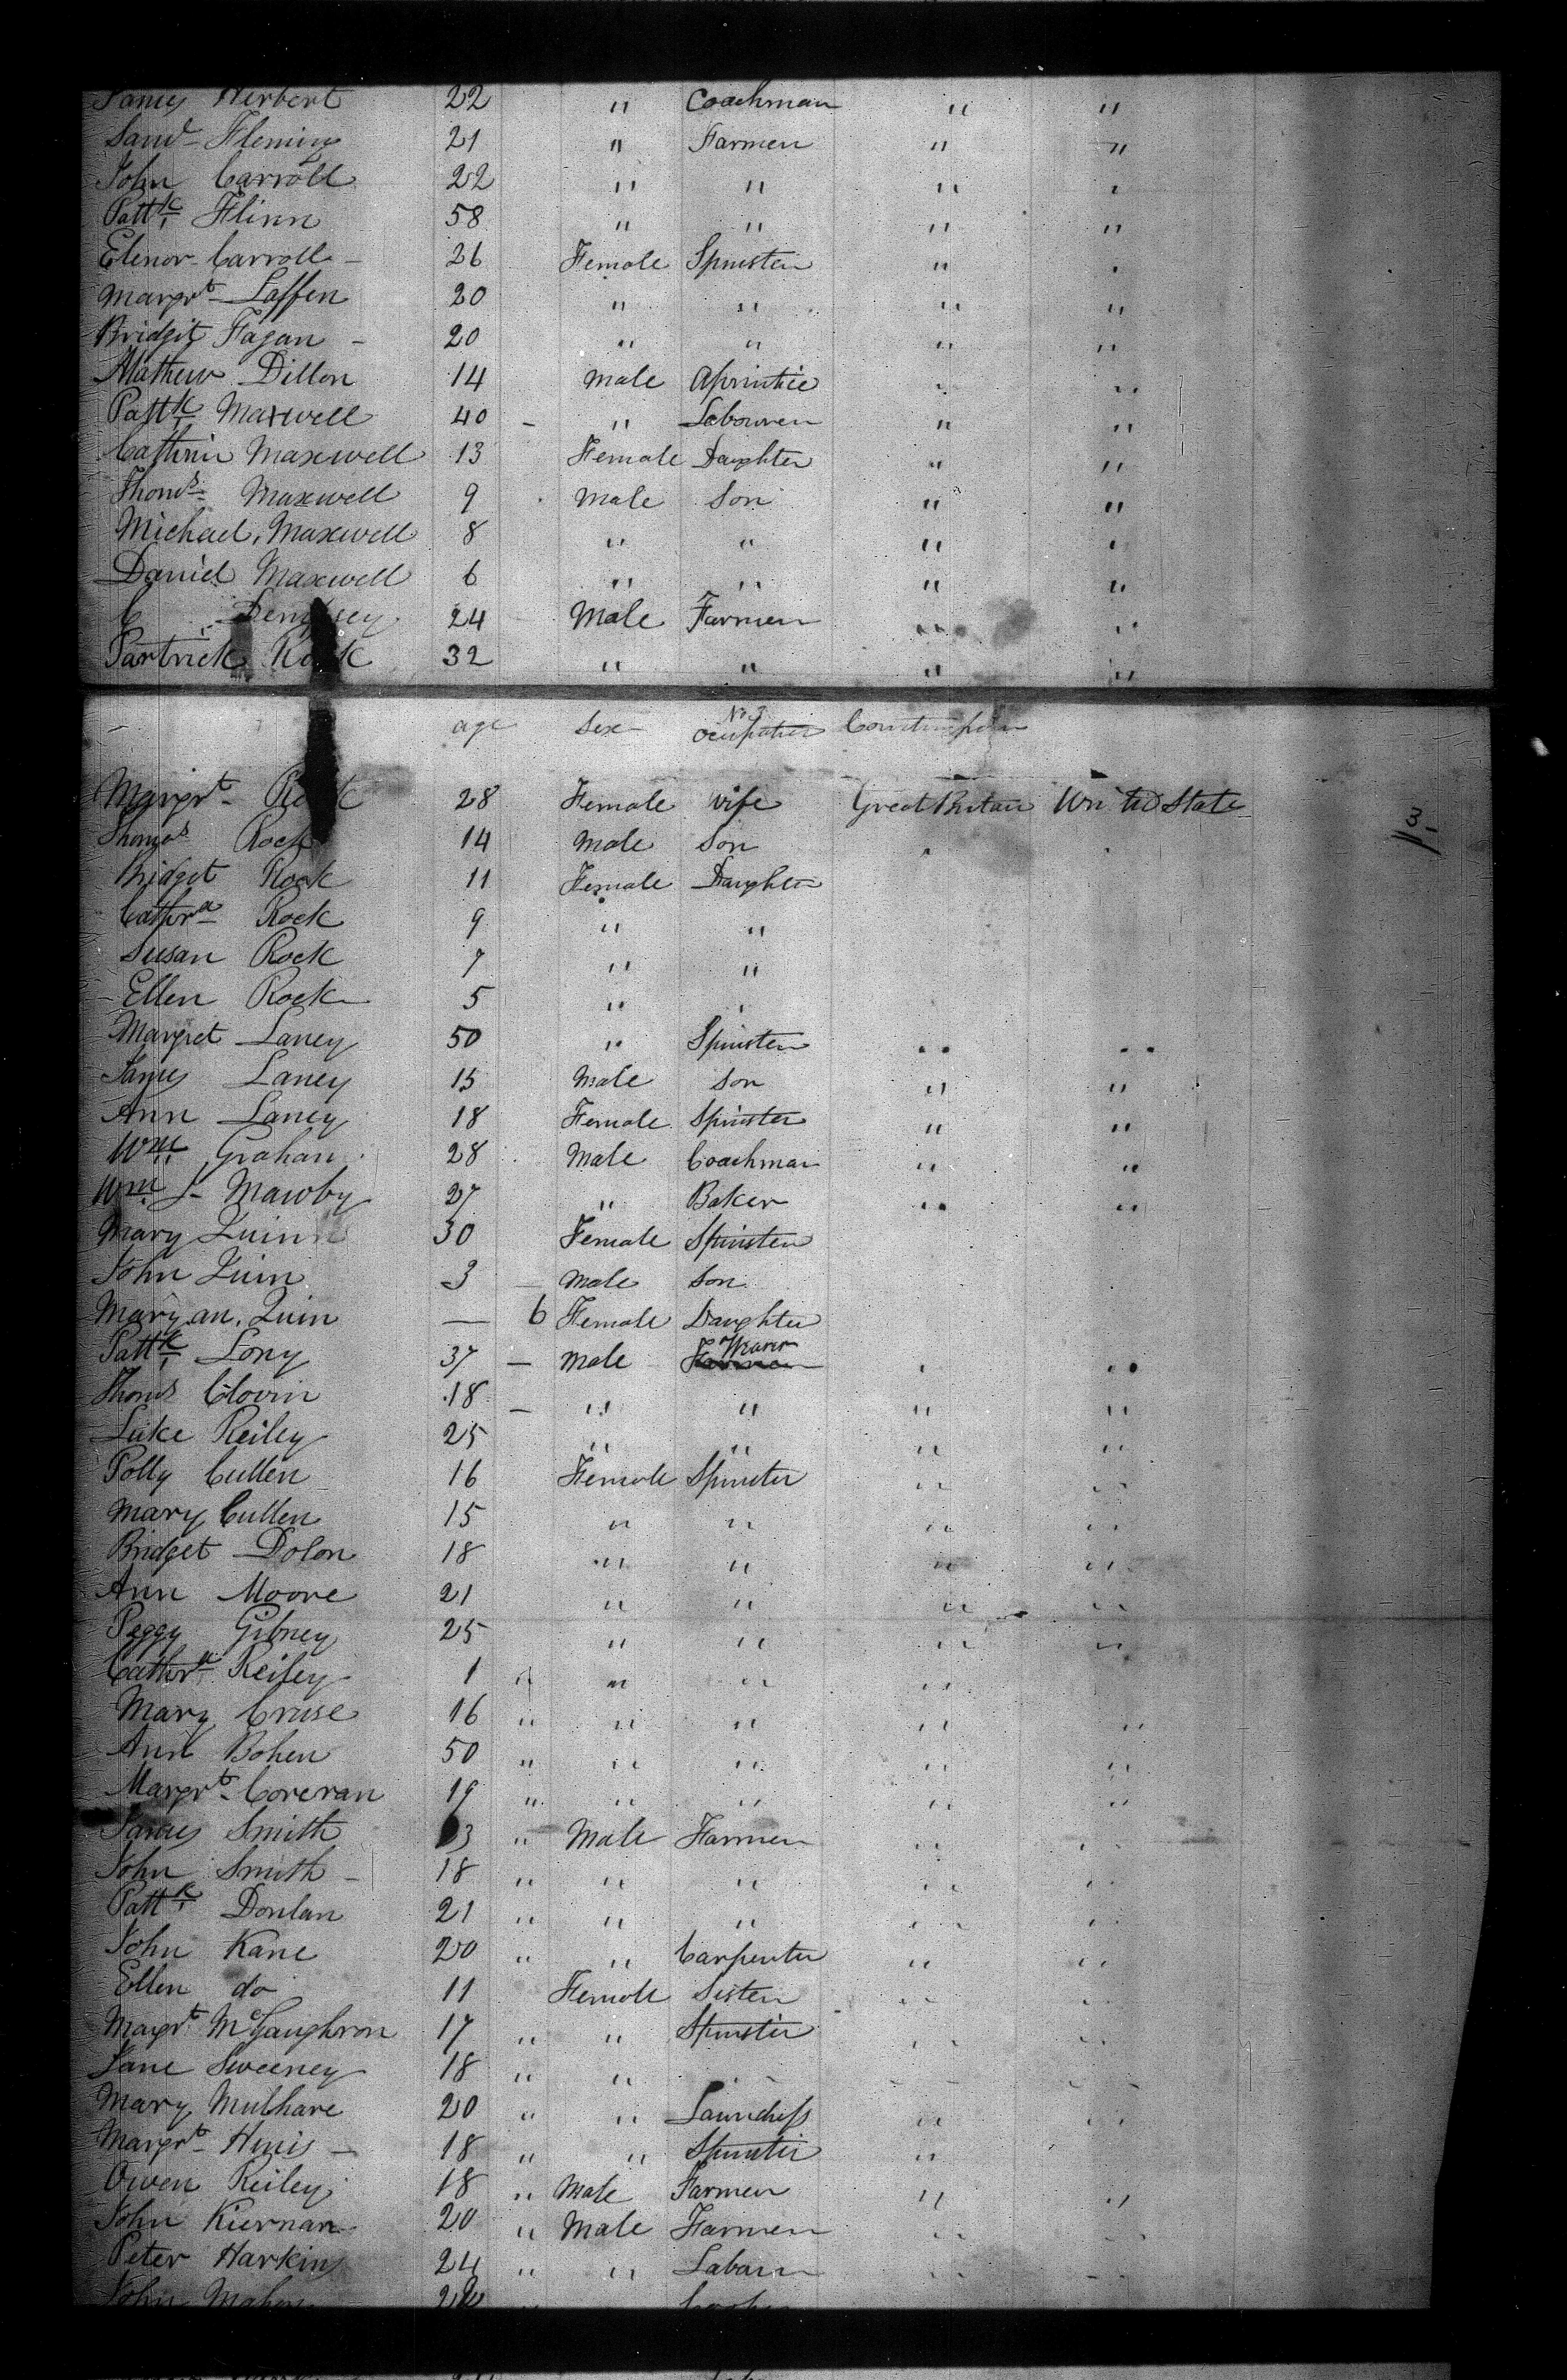 James Herbert 22 " Coachman " "
Saml Fleming 21 " Farmer " "
John Carroll 22 " " " "
Pattk Flinn 58 " " " "
Elenor Carroll - 26 Female Spinster " "
Margrt Laffen 20 " " " "
Bridgit Fagan - 20 " " " "
Mathew Dillon 14 male Aprintice " "
Pattk Maxwell 40 - " Labourer " "
Cathrin Maxwell 13 Female Daughter " "
Thoms Maxwell 9 male Son " "
Michael Maxwell 8 " " " "
Daniel Maxwell 6 " " " "
Dempsey 24 Male Farmer " "
Partrick Rock 32 " " " "
No 3
age Sex Ocupation
Margrt Rock 28 Female wife Great Britain United State
Thomas Rock 14 male Son " "
3
Bridget Rock 11 Female Daughter
Cathra Rock 9 " "
Susan Rock 7 " "
Ellen Rock 5 " "
Margret Laney 50 " Spinster " "
James Laney 15 Male Son " "
Ann Laney 18 Female Spinster " "
Wm Grahan 28 Male Coachman " "
Wm S- Mawby 27 " Baker " "
Mary Quinn 30 Female Spinster
John Quin 3 - male Son
Mary an Quin — 6 Female Daughter
Weaver
Pattk Lony 37 - male Farmer " "
Thoms Clovin 18 - " " " "
Luke Reiley 25 " " " "
Polly Cullen 16 Female Spinster " "
Mary Cullen 15 " " " "
Bridget Dolon 18 " " " "
Ann Moore 21 " " " "
Peggy Gibney 25 " " " "
Cathra Reiley 1 " " " "
Mary Cruse 16 " " " " "
Ann Bohen 50 " " " " "
Margrt Coreran 19 " " " " "
James Smith 3 " Male Farmer " "
John Smith - 18 " " " " "
Pattk Donlan 21 " " " " "
John Kane 20 " " Carpenter " "
Ellen do 11 Female Sister " "
Margrt McGaughron 17 " " Spinster " "
Jane Sweeney 18 " " " " "
Mary Mulhare 20 " " Laundress " "
Margrt Hinis - 18 " " Spinster "
Owen Reiley 18 " Male Farmer " "
John Kiernan 20 " Male Farmer " "
Peter Harkin 24 " " Labour " "
John Mahon